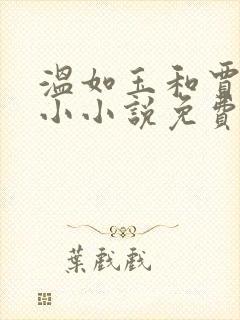 溫如玉和賈
小小說免費
葉戲戲